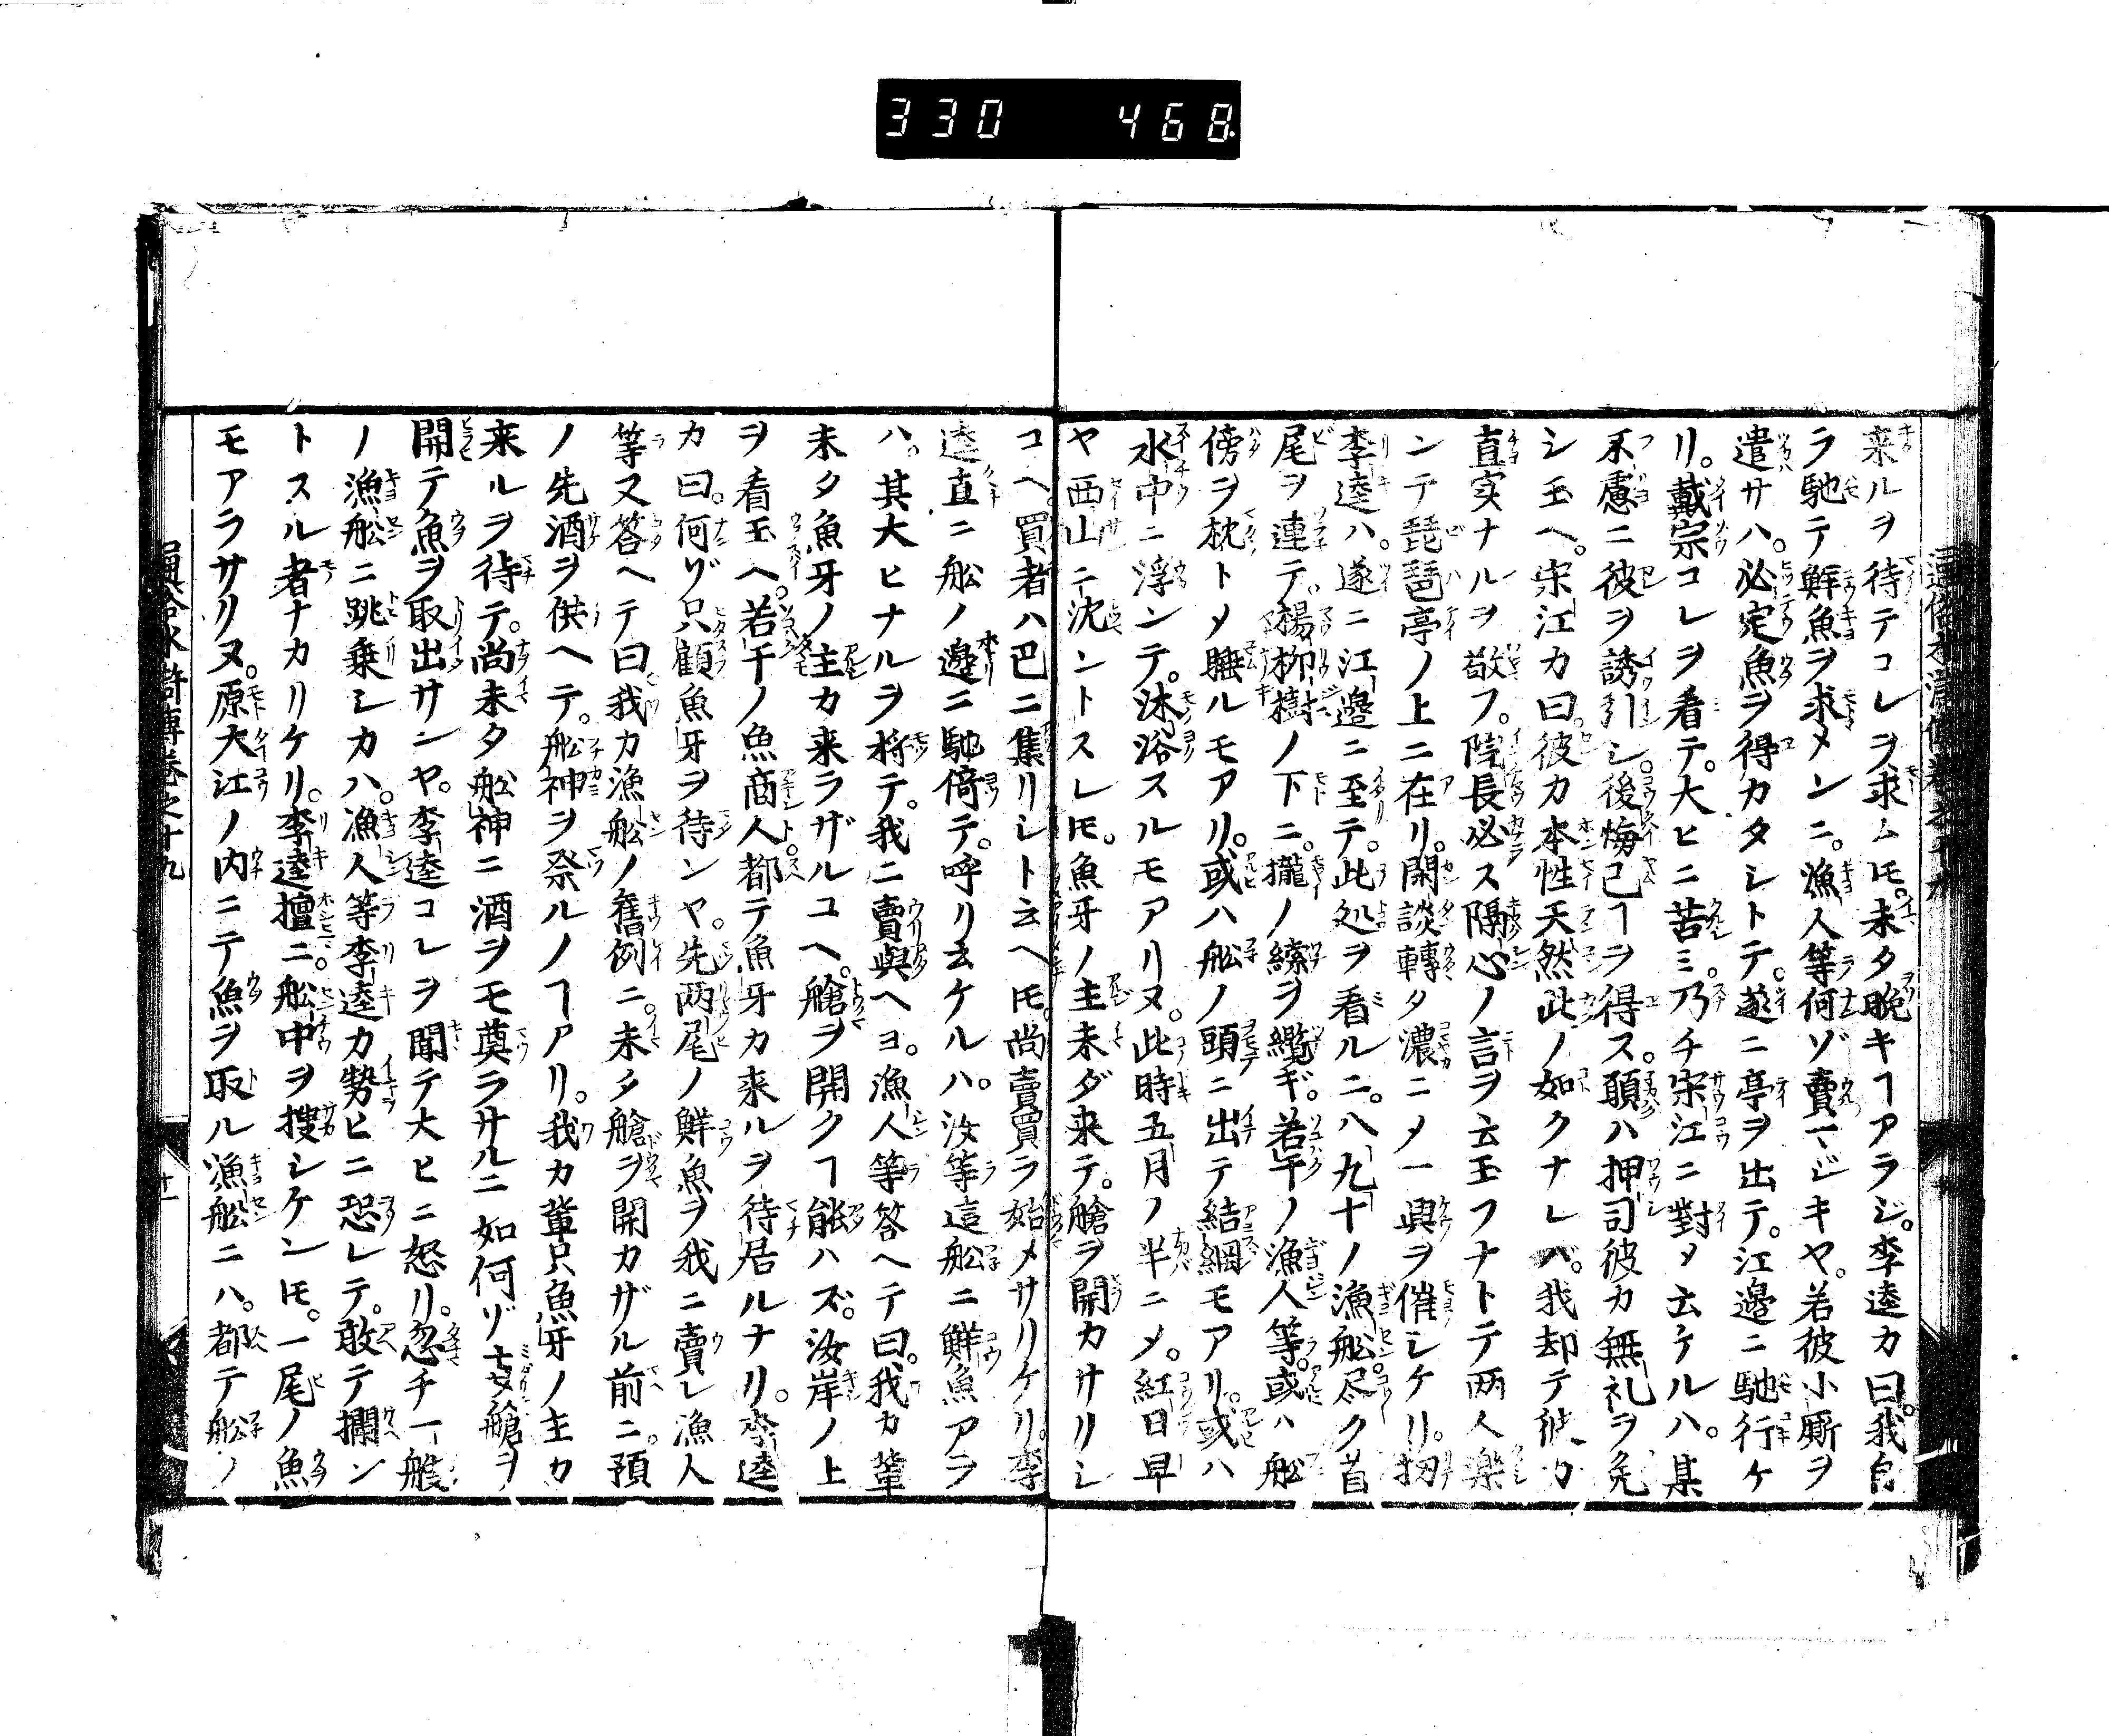 330 468
来ルヲ待テコレヲ求ムヒ。未タ晩キヿアラジ。李逵カ曰。我自
ラ馳テ鮮魚ヲ求メンニ。漁人等何ゾ賣マジキヤ。若彼小厮ヲ
遣サハ。必定魚ヲ得カタシトテ。遂ニ亭ヲ出テ。江邉ニ馳行ケ
リ。戴宗コレヲ看テ。大ヒニ苦ミ。乃チ宋江ニ對メ云ケルハ。某
不慮ニ彼ヲ誘引シ。後悔已ヿヲ得ス。頤ハ押司彼カ無礼ヲ免
シ玉ヘ。宋江カ曰。彼カ本性天然此ノ如クナレハ。我却テ彼カ
直実ナルヲ敬フ。院長必ス隔心ノ言ヲ云玉フナトテ両人樂
ンテ琵琶亭ノ上ニ在リ。閑談轉タ濃ニメ一興ヲ催シケリ。扨
李逵ハ。遂ニ江邉ニ至テ。此処ヲ看ルニ。八九十ノ漁舩尽ク首
尾ヲ連テ。楊柳樹ノ下ニ。攏ノ縤ヲ纜ギ。若干ノ漁人等。或ハ舩
傍ヲ枕トメ睡ルモアリ。或ハ舩ノ頭ニ出テ結網モアリ。或ハ
水中ニ浮ンテ。沐浴スルモアリヌ。此時五月ノ半ニメ。紅日早
ヤ西山ニ沈ントスレヒ。魚牙ノ主未ダ来テ。艙ヲ開カサリシ
コヘ。買者ハ巴ニ集リシト云ヘヒ。尚賣買ラ始メサリケリ。李
逵直ニ舩ノ邉ニ馳倚テ。呼リ云ケルハ。汝等這舩ニ鮮魚アラ
ハ。其大ヒナルヲ将テ。我ニ賣與ヘヨ。漁人等答ヘテ曰。我カ輩
未タ魚牙ノ主カ来ラザルコヘ。艙ヲ開クヿ能ハズ。汝岸ノ上
ヲ看玉ヘ。若干ノ魚商人都テ魚牙カ来ルヲ待居ルナリ。李逵
カ曰。何ゾ只顧魚牙ヲ待ンヤ。先両尾ノ鮮魚ヲ我ニ賣レ漁人
等又答ヘテ曰。我カ漁舩ノ舊例ニ。未タ艙ヲ開カザル前ニ。預
ノ先酒ヲ供ヘテ。舩神ヲ祭ルノヿアリ。我カ輩只魚牙ノ主カ
来ルヲ待テ。尚未タ舩神ニ酒ヲモ奠ラサルニ如何ゾ妄艙ヲ
開テ魚ヲ取出サンヤ。李逵コレヲ聞テ大ヒニ怒リ。忽チ一艘
ノ漁舩ニ跳乗シカハ。漁人等李逵カ勢ヒニ恐レテ。敢テ攔ン
トスル者ナカリケリ。李逵擅ニ。舩中ヲ搜シケンヒ。一尾ノ魚
モアラサリヌ。原大江ノ内ニテ魚ヲ取ル漁舩ニハ。都テ舩ノ
水滸傳巻之十九